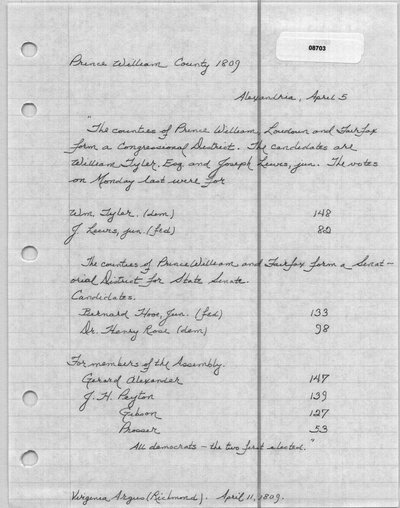 08703
Prince William County 1809
Alexandria, April 5
"The counties of Prince William, Loudoun and Fairfax
form a Congressional District. The candidates are
William Tyler, Esq. and Joseph Lewis, jun. The votes
on Monday last were for
Wm. Tyler. (dem) 148
J. Lewis, jun. (fed) 82
The counties of Prince William and Fairfax form a Senat-
orial District for State Senate.
Candidates.
Bernard Hooe, Jun. (fed) 133
Dr. Henry Rose (dem) 98
For members of the Assembly.
Gerard Alexander 147
J. H. Peyton 139
Gibson 127
Prosser 53
All democrats - the two first elected."
Virginia Argus (Richmond). April 11, 1809.